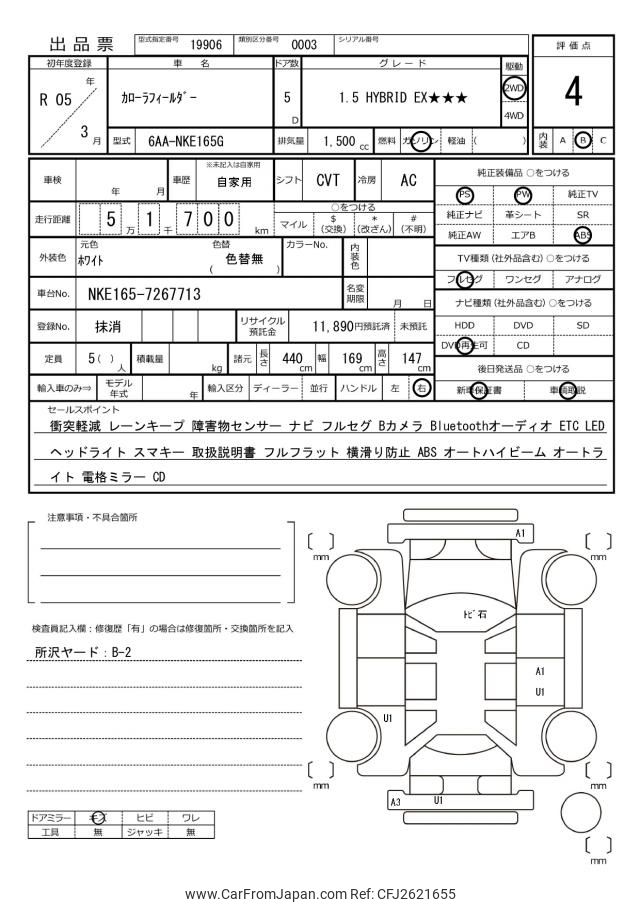 出品票 型式指定番号 19906 類別区分番号 0003 シリアル番号
評価点
4
内装 A B C
初年度登録 車名 ドア数 グレード 駆動
R 05 年 3 月
カローラフィールダー 5 D 1.5 HYBRID EX★★★ 2WD
4WD
型式 6AA-NKE165G 排気量 1,500 cc 燃料 ガソリン 軽油 ( )
車検 年 月 車歴 ※未記入は自家用 自家用 シフト CVT 冷房 AC
走行距離 5 万 1 千 7 0 0 km
○をつける
マイル $(交換) *(改ざん) #(不明)
外装色 元色 ホワイト 色替 ( 色替無 ) カラーNo. 内装色
車台No. NKE165-7267713 名変期限 月 日
登録No. 抹消 リサイクル預託金 11,890円預託済 未預託
定員 5( )人 積載量 kg 諸元 長さ 440 cm 幅 169 cm 高さ 147 cm
輸入車のみ⇒ モデル年式 年 輸入区分 ディーラー 並行 ハンドル 左 右
純正装備品 ○をつける
PS PW 純正TV
純正ナビ 革シート SR
純正AW エアB ABS
TV種類(社外品含む)○をつける
フルセグ ワンセグ アナログ
ナビ種類(社外品含む)○をつける
HDD DVD SD
DVD再生可 CD
後日発送品 ○をつける
新車保証書 車輌取説
セールスポイント
衝突軽減 レーンキープ 障害物センサー ナビ フルセグ Bカメラ Bluetoothオーディオ ETC LED
ヘッドライト スマキー 取扱説明書 フルフラット 横滑り防止 ABS オートハイビーム オートラ
イト 電格ミラー CD
注意事項・不具合箇所
検査員記入欄：修復歴「有」の場合は修復箇所・交換箇所を記入
所沢ヤード：B-2
ドアミラー キズ ヒビ ワレ
工具 無 ジャッキ 無
A1
mm
mm
トビ石
A1
U1
U1
mm
mm
A3 U1
mm
www.CarFromJapan.com Ref: CFJ2621655